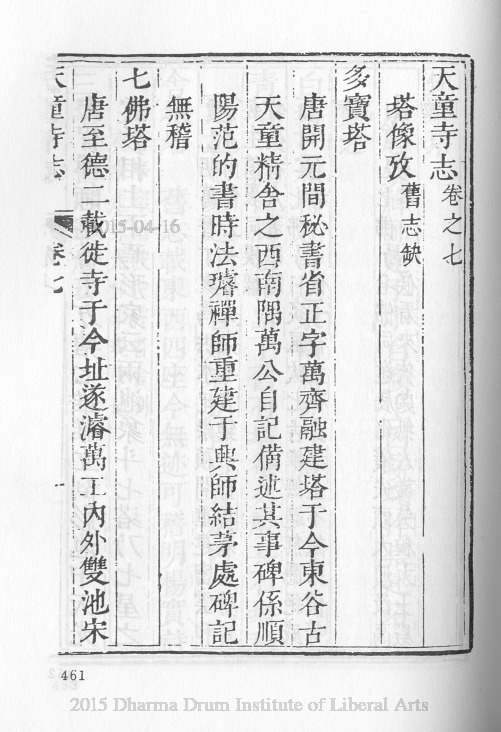 天童寺志卷之七
塔像攷舊志缺
多寶塔
唐開元間秘書省正字萬齊融建塔于今東谷古
天童精舍之西南隅萬公自記備述其事碑係順
陽范的書時法璿禪師重建于興師結茅處碑記
無稽
七佛塔
唐至德二載徙寺于今址遂濬萬工內外雙池宋
天童寺志 卷七 一
2015-04-16
461
2015 Dharma Drum Institute of Liberal Arts